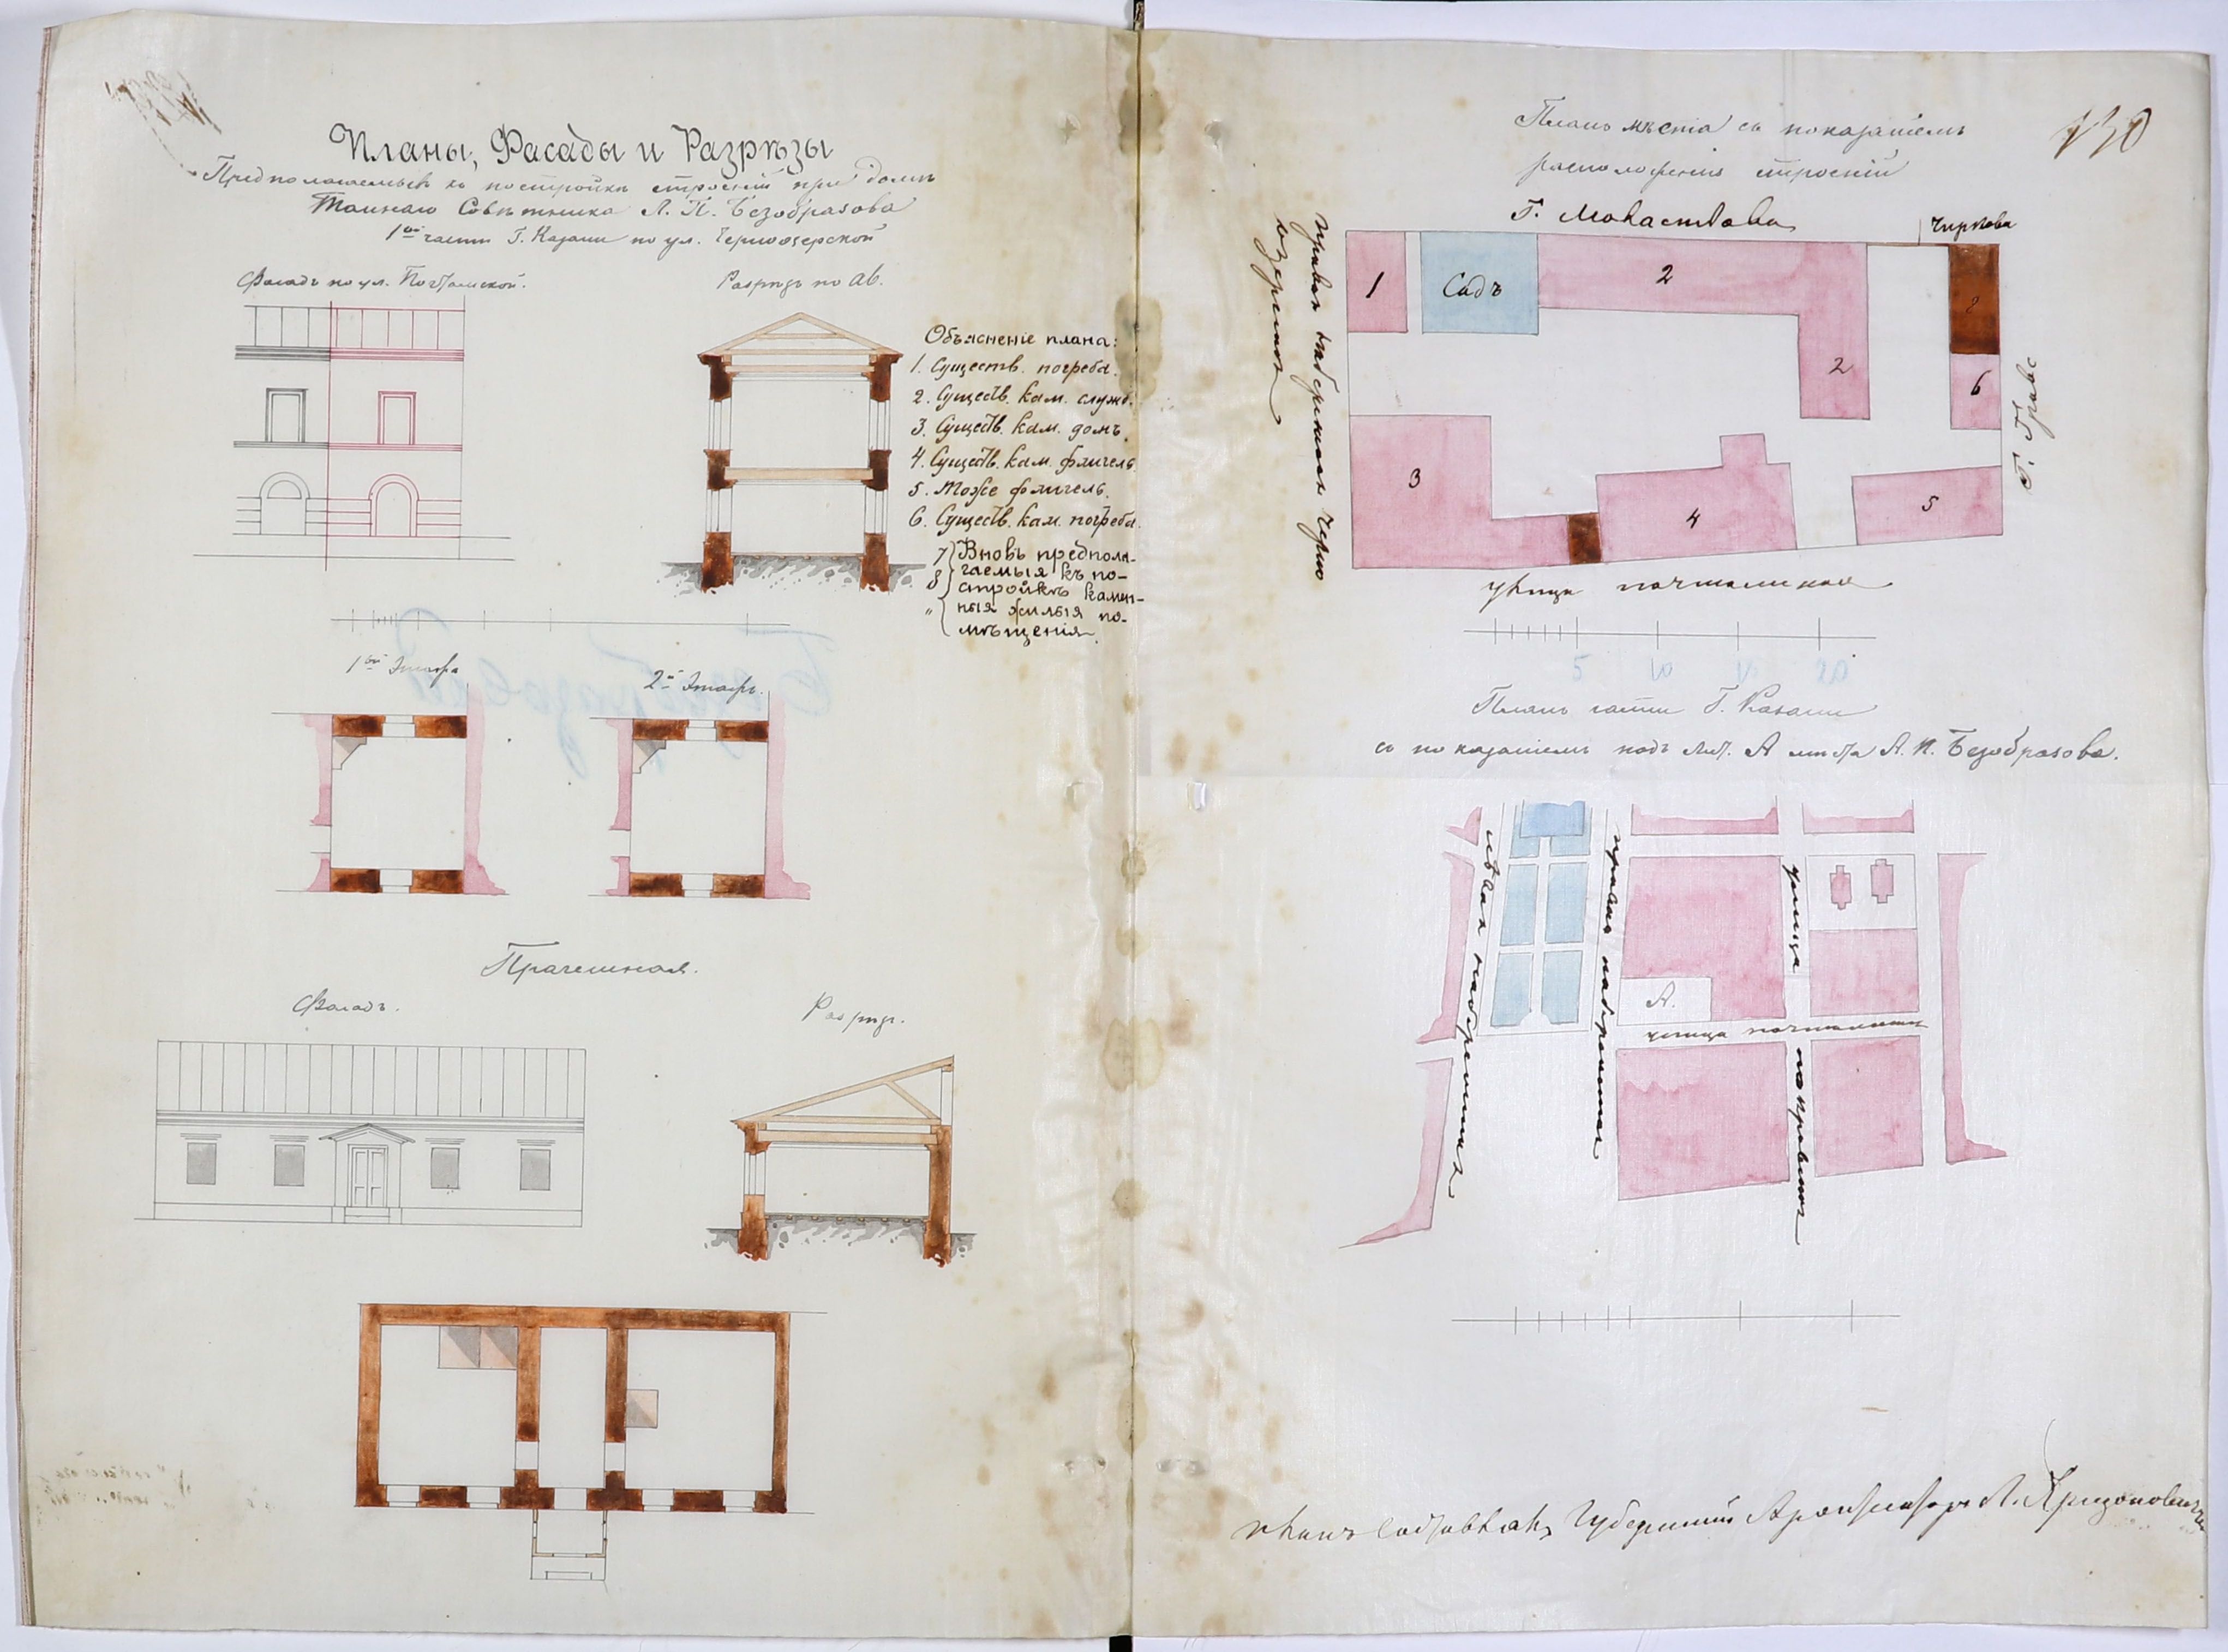 Планы, Фасады и Разрѣзы
Предполагаемыхъ къ постройкѣ строеній при домѣ
Тайнаго Совѣтника А. И. Безобразова
1ой части Г. Казани по ул. Черноозерской
Фасадъ по ул. Почтамской.
Разрѣзъ по ав.
Объясненіе плана:
1. Существ. погреба.
2. Существ. кам. служб.
3. Существ. кам. домъ.
4. Существ. кам. флигель.
5. Тоже флигель.
6. Существ. кам. погреба.
7 } Вновь предпола-
8 } гаемыя къ по-
стройкѣ камен-
" { ныя жилыя по-
мѣщенія.
1ой Этажъ
2й Этажъ.
Прачешная.
Фасадъ.
Разрѣзъ.
130
Планъ мѣста съ показаніемъ
расположенія строеній
Г. Мокаствова
Чиркова
правая набережная черно
озерская
1
Садъ
2
2
8
6
3
4
5
улица почтамская
5 10 15 20
Планъ части Г. Казани
съ показаніемъ подъ лит. А мѣста А. И. Безобразова.
лѣвая набережная
правая набережная
улица
А.
улица почтамская
покровская
планъ составлялъ Губернскій Архитекторъ